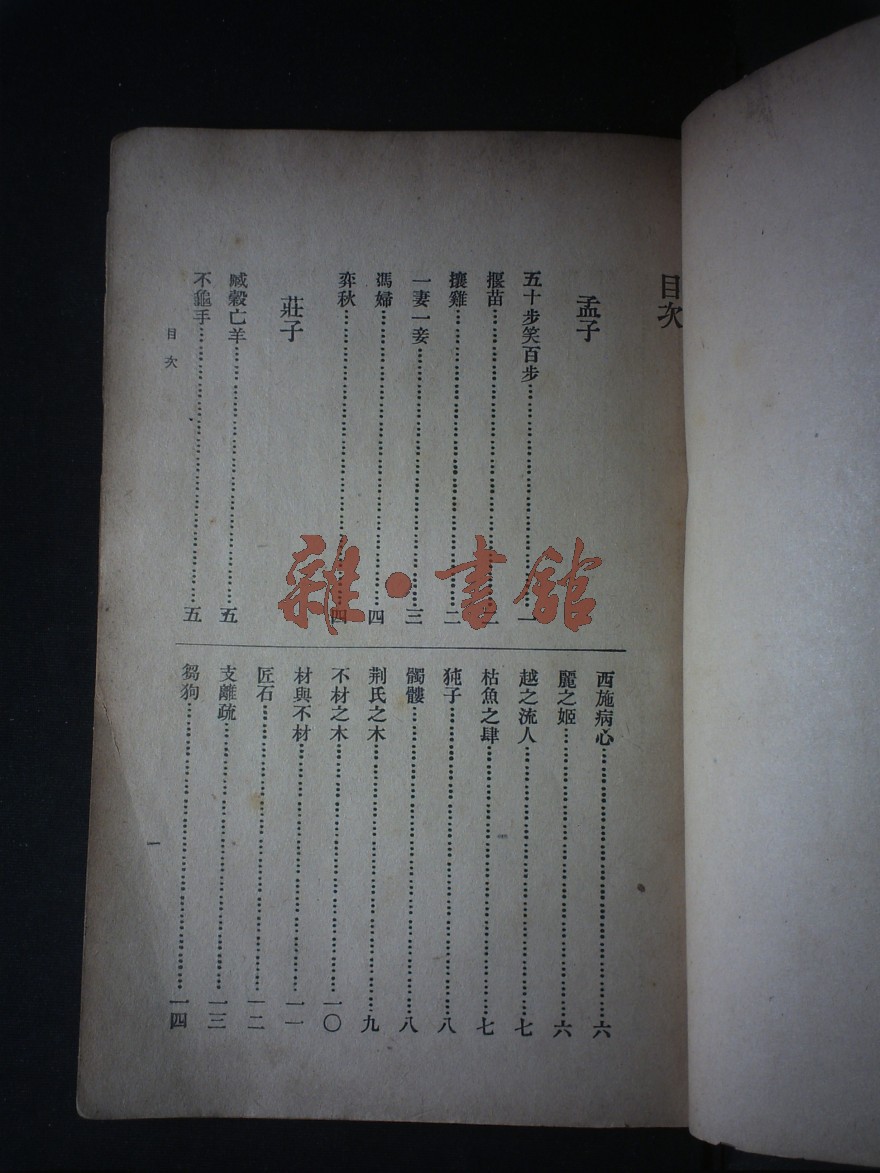 目次
孟子
五十步笑百步……一
揠苗……
攘雞……二
一妻一妾……三
馮婦……四
弈秋……四
莊子
臧穀亡羊……五
不龜手……五
西施病心……六
麗之姬……六
越之流人……七
枯魚之肆……七
㹠子……八
髑髏……八
荆氏之木……九
不材之木……一〇
材與不材……一一
匠石……一二
支離疏……一三
芻狗……一四
目次
一
雜·書館